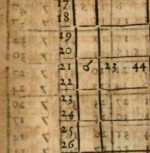 17
18
19
20
21 ☌ 23 44
22
23
24
25
26